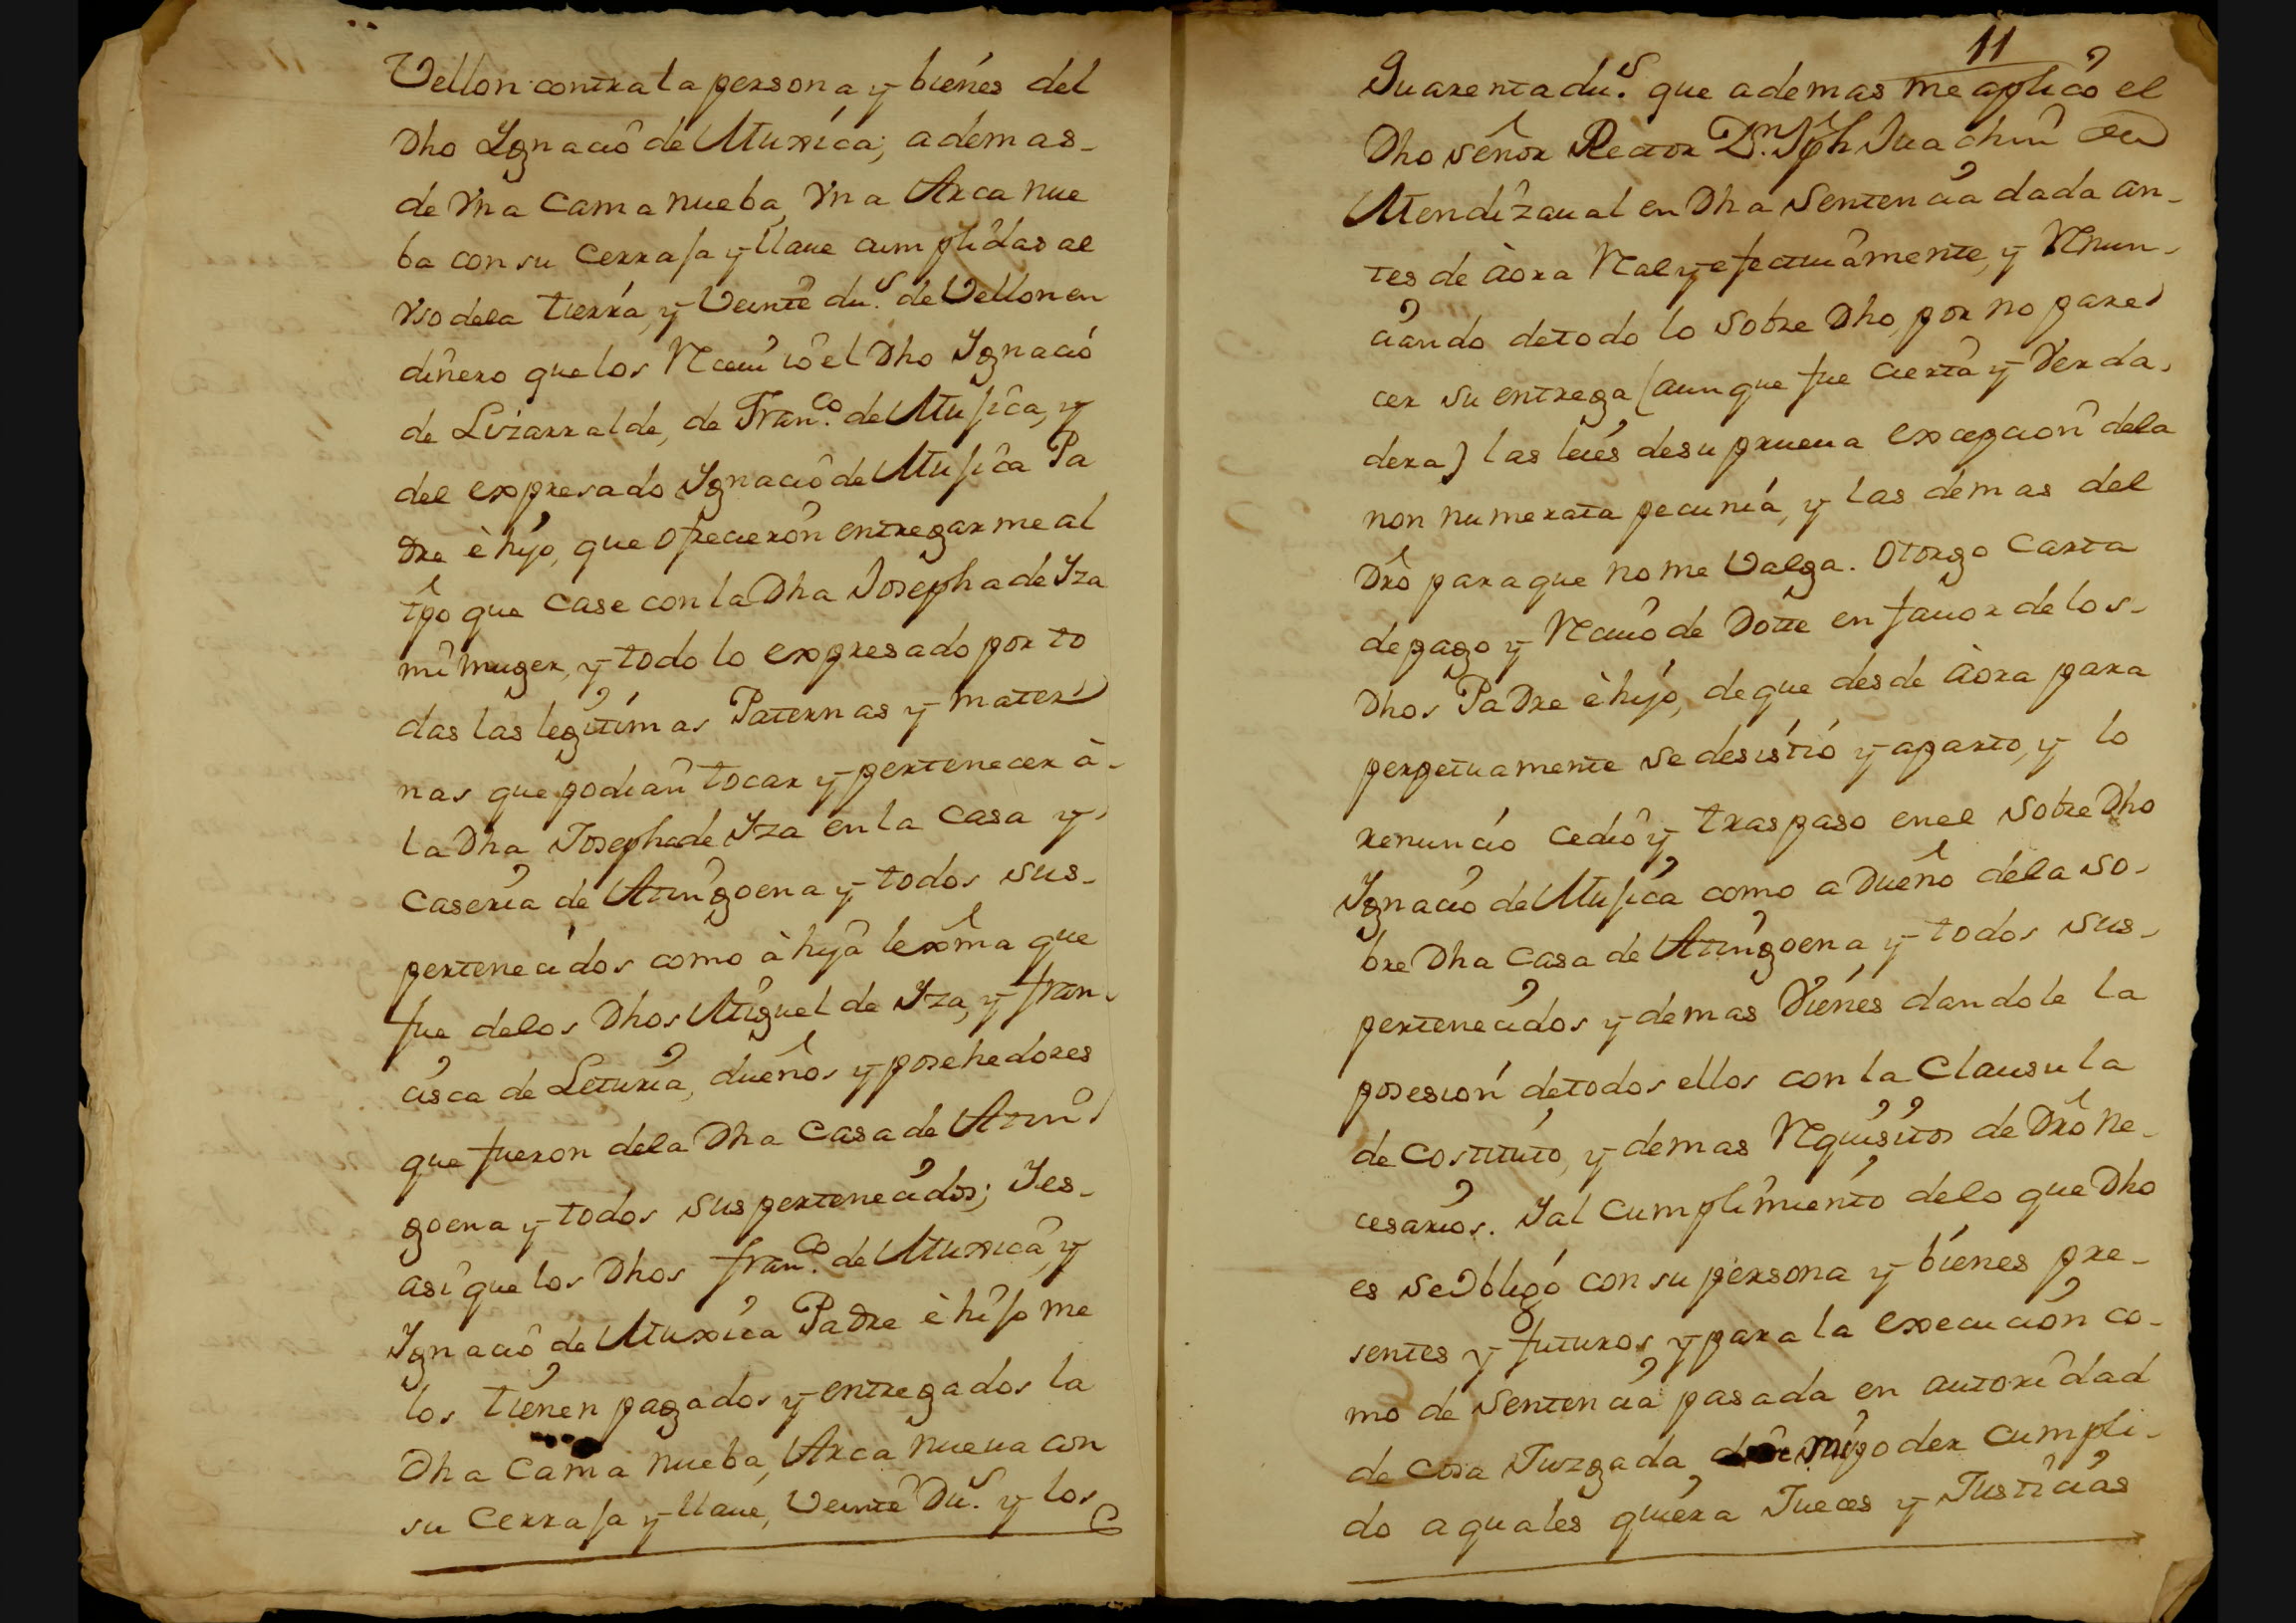 Vellon contra la persona y bienes del
Dho Ygnacio de Muxica; ademas-
de Vna cama nueba, Vna Arca nue
ba con su cerraja y llaue cumplidas al
Vso dela tierra, y Veinte du.s de Vellon en
dinero que los Reciuio el Dho Ygnacio
de Lizarralde, de Fran.co de Mujica, y
del expresado Ygnacio de Mujica Pa
dre è hijo, que ofrecieron entregarme al
tpo que case con la Dha Josepha de Yza
mi muger, y todo lo expresado por to
das las legitimas Paternas y mater
nas que podian tocar y pertenecer à-
la Dha Josepha de Yza en la casa y
caseria de Atingoena y todos sus-
pertenecidos como à hija lexma que
fue delos Dhos Miguel de Yza, y fran-
cisca de Leturia, dueños y posehedores
que fueron dela Dha casa de Atin
goena y todos sus pertenecidos; Y es-
asi que los Dhos fran.co de Muxica, y
Ygnacio de Muxica Padre è hijo me
los tienen pagados y entregados la
Dha cama nueba, Arca nueua con
su cerraja y llaue, Veinte Du.s y los
11
Quarenta du.s que ademas me aplicò el
Dho señor Rector D.n Jph Juachin de
Mendizaual en Dha Sentencia dada an-
tes de àora Real y efectiuamente, y Renun-
ciando detodo lo sobre Dho, por no pare
cer su entrega (aunque fue cierta y Verda-
dera) las leies desu prueua excepcion dela
non numerata pecunia, y las demas del
Dro para que no me Valga. Otorgo Carta
de pago y Reciuo de Dotte en fauor delos-
Dhos Padre è hijo, de que desde àora para
perpetuamente se desistió y aparto, y lo
renunció cedió y traspaso enel sobre Dho
Ygnacio de Mujica como a Dueño dela so-
bre Dha casa de Atingoena y todos sus-
pertenecidos y demas Vienes dandole la
posesion detodos ellos con la Clausula
de costituto, y demas Requisitos de Dro ne-
cesarios. Y al cumplimiento delo que Dho
es se Obligó con su persona y bienes pre-
sentes y futuros y para la execucion co-
mo de Sentencia pasada en autoridad
de cosa Juzgada dio poder cumpli-
do a quales quiera Jueces y Justicias